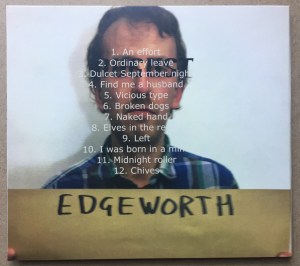 1. An effort
2. Ordinary leave
3. Dulcet September
4. Find me a husband
5. Vicious type
6. Broken dogs
7. Naked hand
8. Elves in the
9. Left
10. I was born in a
11. Midnight roller
12. Chives
EDGEWORTH